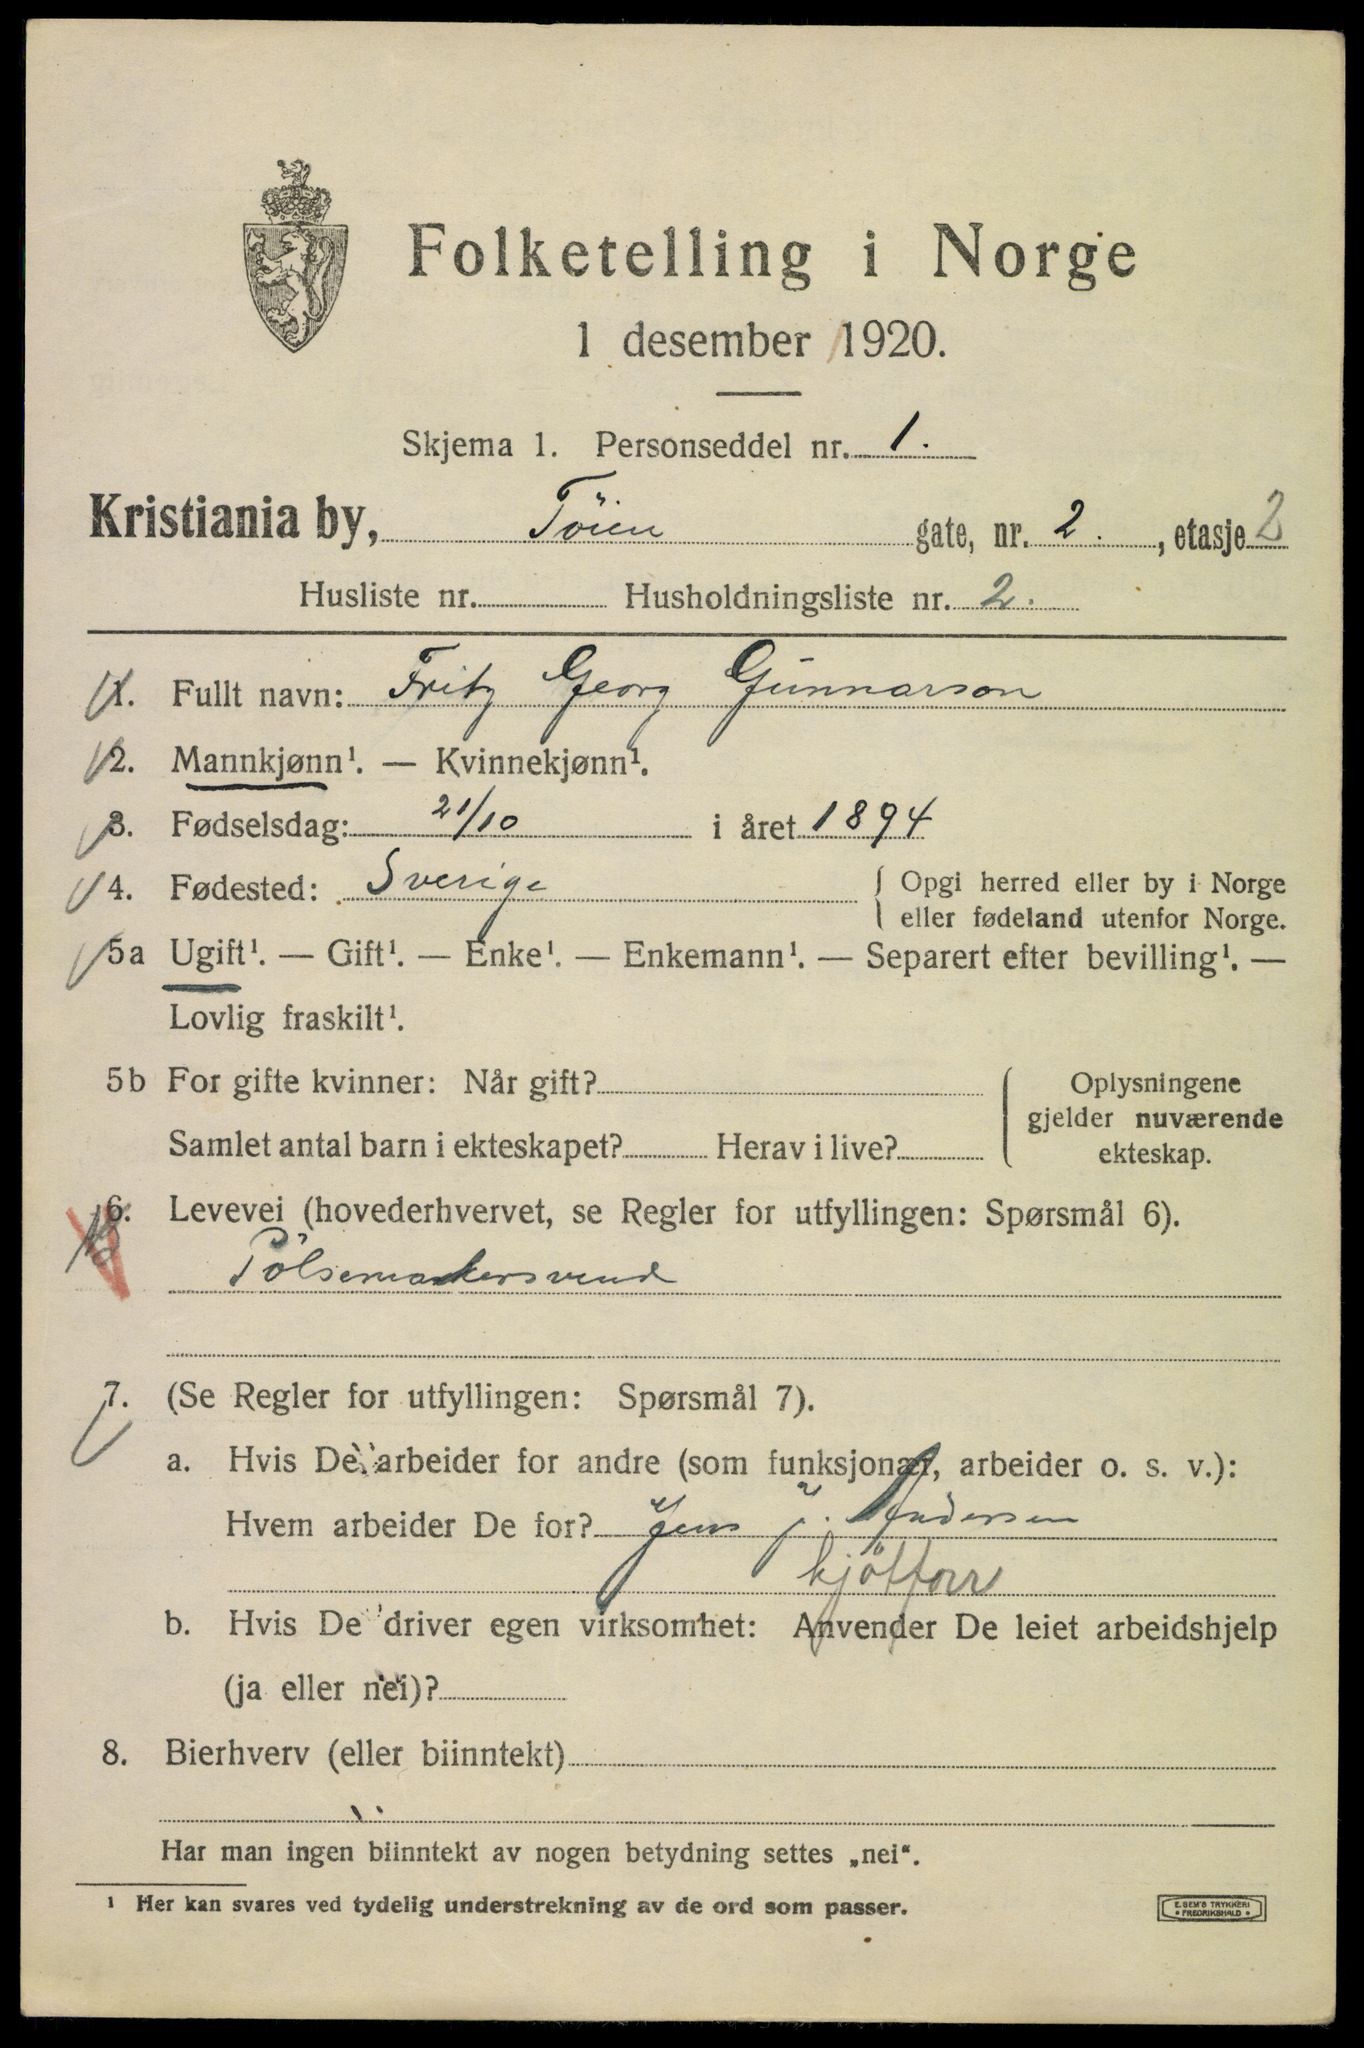 Folketelling i Norge
1 desember 1920.
Skjema 1. Personseddel nr. 1.
Kristiania by, Töien gate, nr. 2. , etasje 2
Husliste nr. Husholdningsliste nr. 2.
1. Fullt navn: Fritz Georg Gunnarson
2. Mannkjønn¹. — Kvinnekjønn¹.
3. Fødselsdag: 21/10 i året 1894
4. Fødested: Sverige { Opgi herred eller by i Norge
eller fødeland utenfor Norge.
5a Ugift¹. — Gift¹. — Enke¹. — Enkemann¹. — Separert efter bevilling¹. —
Lovlig fraskilt¹.
5b For gifte kvinner: Når gift? Oplysningene
gjelder nuværende
Samlet antal barn i ekteskapet? Herav i live? ekteskap.
6. Levevei (hovederhvervet, se Regler for utfyllingen: Spørsmål 6).
Pölsemakersvend
7. (Se Regler for utfyllingen: Spørsmål 7).
a. Hvis De arbeider for andre (som funksjonær, arbeider o. s. v.):
Hvem arbeider De for? Jens J. Andersen
kjöttforr
b. Hvis De driver egen virksomhet: Anvender De leiet arbeidshjelp
(ja eller nei)?
8. Bierhverv (eller biinntekt)
Har man ingen biinntekt av nogen betydning settes „nei“.
¹ Her kan svares ved tydelig understrekning av de ord som passer.
E. SEM'S TRYKKERI
• FREDRIKSHALD •